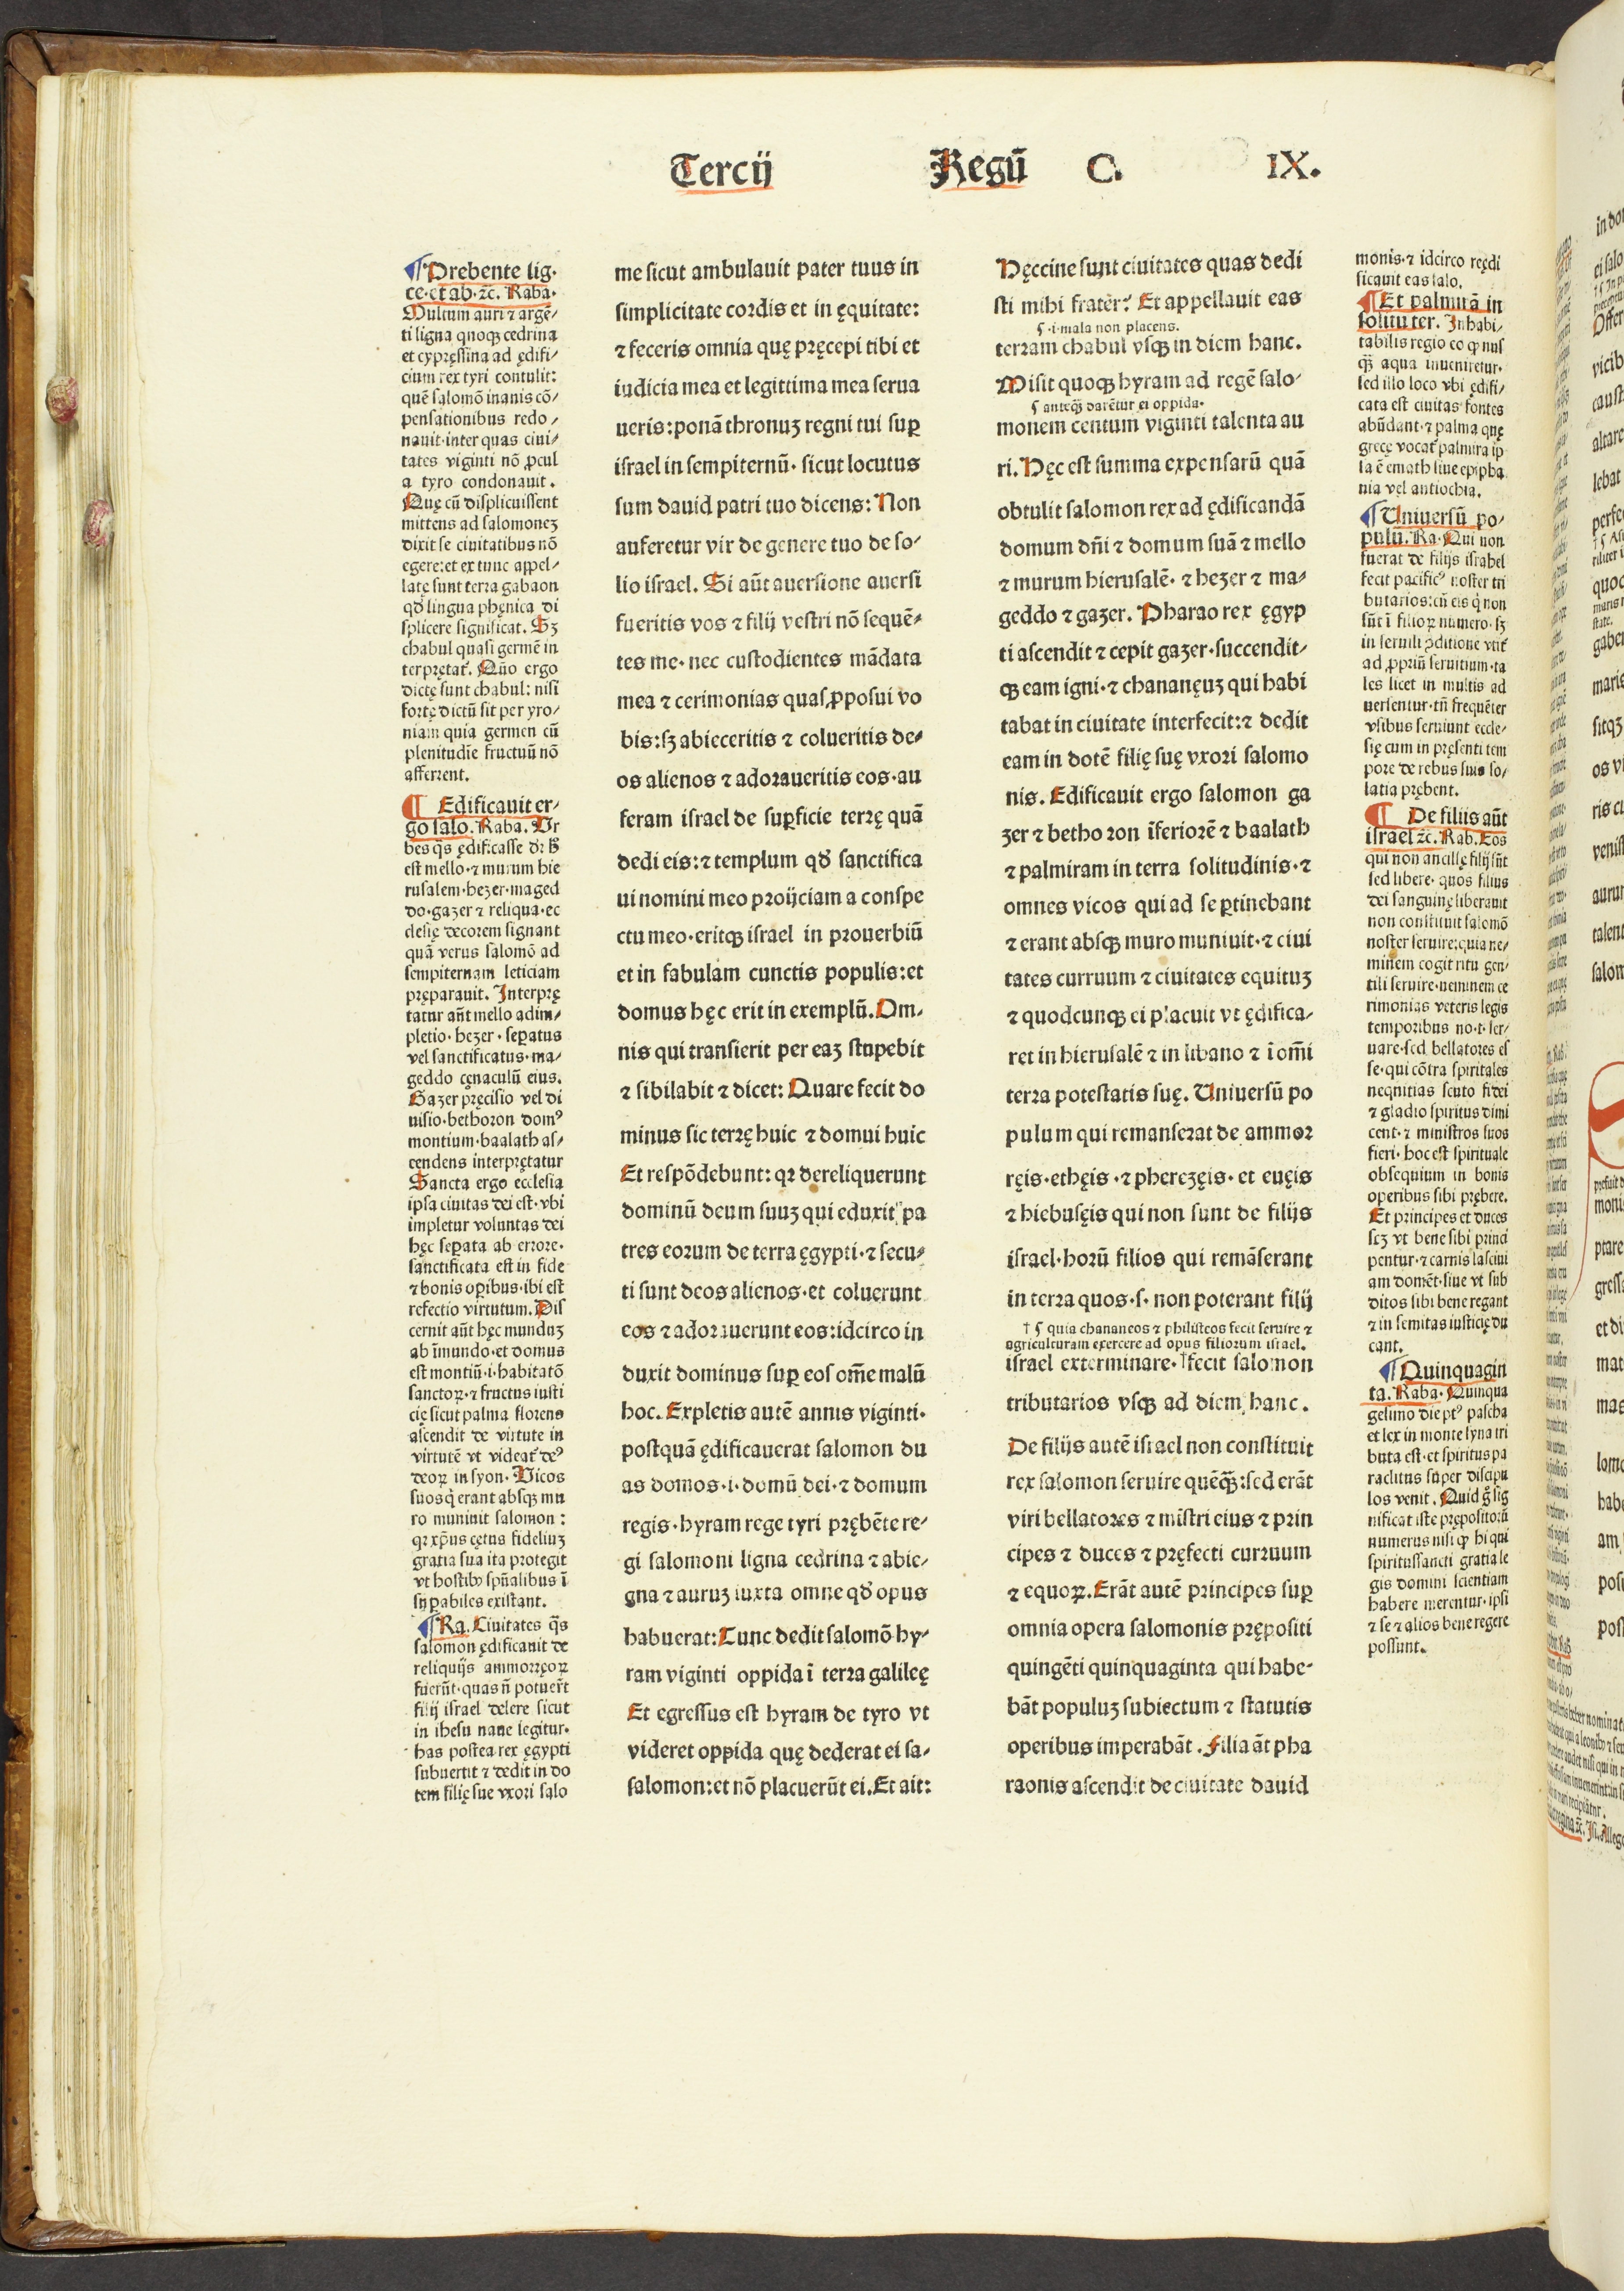 Tercij Regū C. IX.
¶ Prebente lig·
ce·et ab·⁊c̄. Raba·
Multum auri ⁊ argē⸗
ti ligna quoqꝫ cedrina
et cypręssina ad ędifi⸗
cium rex tyri contulit:
quē salomō inanis cō⸗
pensationibus redo⸗
nauit·inter quas ciui⸗
tates viginti nō ꝓcul
a tyro condonauit.
Quę cū displicuissent
mittens ad salomoneꝫ
dixit se ciuitatibus nō
egere:et ex tunc appel⸗
latę sunt terra gabaon
qđ lingua phęnica di
splicere significat. Sꝫ
chabul quasi germē in
terpretat᷑. Quō ergo
dictę sunt chabul: nisi
fortę dictū sit per yro⸗
niam quia germen cū
plenitudīe fructuū nō
afferrent.
¶ Edificauit er⸗
go salo. Raba. Ur
bes q̄s ędificasse dr̄ h̄
est mello·⁊ murum hie
rusalem·hezer·maged
do·gazer ⁊ reliqua·ec
clesię decorem signant
quā verus salomō ad
sempiternam leticiam
pręparauit. Interprę
tatur aūt mello adim⸗
pletio·hezer·seꝑatus
vel sanctificatus·ma⸗
geddo cęnaculū eius.
Gazer pręcisio vel di
uisio·bethoron domꝰ
montium·baalath as⸗
cendens interprętatur
Sancta ergo ecclesia
ipsa ciuitas dei est·vbi
impletur voluntas dei
hęc seꝑata ab errore·
sanctificata est in fide
⁊ bonis oꝑibus·ibi est
refectio virtutum. Dis
cernit aūt hęc munduꝫ
ab īmundo·et domus
est montiū·i·habitatō
sanctoꝝ·⁊ fructus iusti
cię sicut palma florens
ascendit de virtute in
virtutē vt videat᷑ deꝰ
deoꝝ in syon. Vicos
suos q̇ erant absqꝫ mu
ro muniuit salomon:
qꝛ xp̄us cętus fideliuꝫ
gratia sua ita protegit
vt hostibꝫ spūalibus ī
suꝑabiles existant.
¶ Ra. Ciuitates q̄s
salomon ędificauit de
reliquijs ammorręoꝝ
fuerūt·quas n̄ potuer̄t
filij israel delere sicut
in ihesu naue legitur·
has postea rex ęgypti
subuertit ⁊ dedit in do
tem filię sue vxori salo
me sicut ambulauit pater tuus in
simplicitate cordis et in ęquitate:
⁊ feceris omnia quę pręcepi tibi et
iudicia mea et legittima mea serua
ueris:ponā thronuꝫ regni tui suꝑ
israel in sempiternū· sicut locutus
sum dauid patri tuo dicens: Non
auferetur vir de genere tuo de so⸗
lio israel. Si aūt auersione auersi
fueritis vos ⁊ filij vestri nō sequē⸗
tes me· nec custodientes mādata
mea ⁊ cerimonias quas ꝓposui vo
bis:sꝫ abieceritis ⁊ colueritis de⸗
os alienos ⁊ adoraueritis eos·au
feram israel de suꝑficie terrę quā
dedi eis:⁊ templum qđ sanctifica
ui nomini meo proijciam a conspe
ctu meo·eritqꝫ israel in prouerbiū
et in fabulam cunctis populis:et
domus hęc erit in exemplū. Om⸗
nis qui transierit per eaꝫ stupebit
⁊ sibilabit ⁊ dicet: Quare fecit do
minus sic terrę huic ⁊ domui huic
Et respōdebunt: qꝛ dereliquerunt
dominū deum suuꝫ qui eduxit pa
tres eorum de terra ęgypti·⁊ secu⸗
ti sunt deos alienos·et coluerunt
eos ⁊ adorauerunt eos:idcirco in
duxit dominus suꝑ eos om̄e malū
hoc. Expletis autē annis viginti·
postquā ędificauerat salomon du
as domos·i·domū dei·⁊ domum
regis·hyram rege tyri prębēte re⸗
gi salomoni ligna cedrina ⁊ abie⸗
gna ⁊ auruꝫ iuxta omne qđ opus
habuerat: Tunc dedit salomō hy⸗
ram viginti oppida ī terra galileę
Et egressus est hyram de tyro vt
videret oppida quę dederat ei sa⸗
salomon:et nō placuerūt ei. Et ait:
Hęccine sunt ciuitates quas dedi
sti mihi frater? Et appellauit eas
¶ ·i·mala non placens.
terram chabul vsqꝫ in diem hanc.
Misit quoqꝫ hyram ad regē salo⸗
¶ anteqꝫ darētur ei oppida·
monem centum viginti talenta au
ri. Hęc est summa expensarū quā
obtulit salomon rex ad ędificandā
domum dn̄i ⁊ domum suā ⁊ mello
⁊ murum hierusalē· ⁊ hezer ⁊ ma⸗
geddo ⁊ gazer. Pharao rex ęgyp
ti ascendit ⁊ cepit gazer·succendit⸗
qꝫ eam igni·⁊ chananęuꝫ qui habi
tabat in ciuitate interfecit:⁊ dedit
eam in dotē filię suę vxori salomo
nis. Edificauit ergo salomon ga
zer ⁊ betho ron īferiorē ⁊ baalath
⁊ palmiram in terra solitudinis·⁊
omnes vicos qui ad se ꝑtinebant
⁊ erant absqꝫ muro muniuit·⁊ ciui
tates curruum ⁊ ciuitates equituꝫ
⁊ quodcunqꝫ ei placuit vt ędifica⸗
ret in hierusalē ⁊ in libano ⁊ ī om̄i
terra potestatis suę. Uniuersū po
pulum qui remanserat de ammor
ręis·ethęis·⁊ pherezęis· et euęis
⁊ hiebusęis qui non sunt de filijs
israel·horū filios qui remāserant
in terra quos·s·non poterant filij
† ¶ quia chananeos ⁊ philisteos fecit seruire ⁊
agriculturam exercere ad opus filiorum israel.
israel exterminare·†fecit salomon
tributarios vsqꝫ ad diem hanc.
De filijs autē israel non constituit
rex salomon seruire quēqꝫ:sed erāt
viri bellatores ⁊ mīstri eius ⁊ prin
cipes ⁊ duces ⁊ pręfecti curruum
⁊ equoꝝ. Erāt autē principes suꝑ
omnia opera salomonis prępositi
quingēti quinquaginta qui habe⸗
bāt populuꝫ subiectum ⁊ statutis
operibus imperabāt. Filia āt pha
raonis ascendit de ciuitate dauid
monis·⁊ idcirco rędi
ficauit eas salo.
¶ Et palmirā in
solitu ter. Inhabi⸗
tabilis regio eo ꝙ nus
qꝫ aqua inueniretur·
sed illo loco vbi ędifi⸗
cata est ciuitas fontes
abūdant·⁊ palma quę
gręcę vocat᷑ palmira ip
sa ē emath siue epipha
nia vel antiochia.
¶ Uniuersū po⸗
pulū. Ra. Qui non
fuerat de filijs israhel
fecit pacificꝰ noster tri
butarios:cū eis q̇ non
sūt ī filioꝝ numero·sꝫ
in seruili ꝯditione vtit᷑
ad ꝓpriū seruitium·ta
les licet in multis ad
uersentur·tn̄ frequēter
vsibus seruiunt eccle⸗
się cum in pręsenti tem
pore de rebus suis so⸗
latia prębent.
¶ De filiis aūt
israel ⁊c̄. Rab. Eos
qui non ancillę filij sūt
sed libere· quos filius
dei sanguinę liberauit
non constituit salomō
noster seruire:quia ne⸗
minem cogit ritu gen⸗
tili seruire·neminem ce
rimonias veteris legis
temporibus no·t·ser⸗
uare·sed bellatores es
se·qui cōtra spiritales
neqnitias scuto fidei
⁊ gladio spiritus dimi
cent·⁊ ministros suos
fieri·hoc est spirituale
obsequium in bonis
operibus sibi pręberę.
Et principes et duces
scꝫ vt bene sibi princi
pentur·⁊ carnis lasciui
am domēt·siue vt sub
ditos sibi bene regant
⁊ in semitas iusticię du
cant.
¶ Quinquagin
ta. Raba. Quinqua
gesimo die ptꝰ pascha
et lex in monte syna tri
buta est·et spiritus pa
raclitus super discipu
los venit. Quid g̊ sig
nificat iste prępositorū
numerus nisi ꝙ hi qui
spiritussancti gratia le
gis domini scientiam
habere merentur·ipsi
⁊ se ⁊ alios bene regere
possunt.